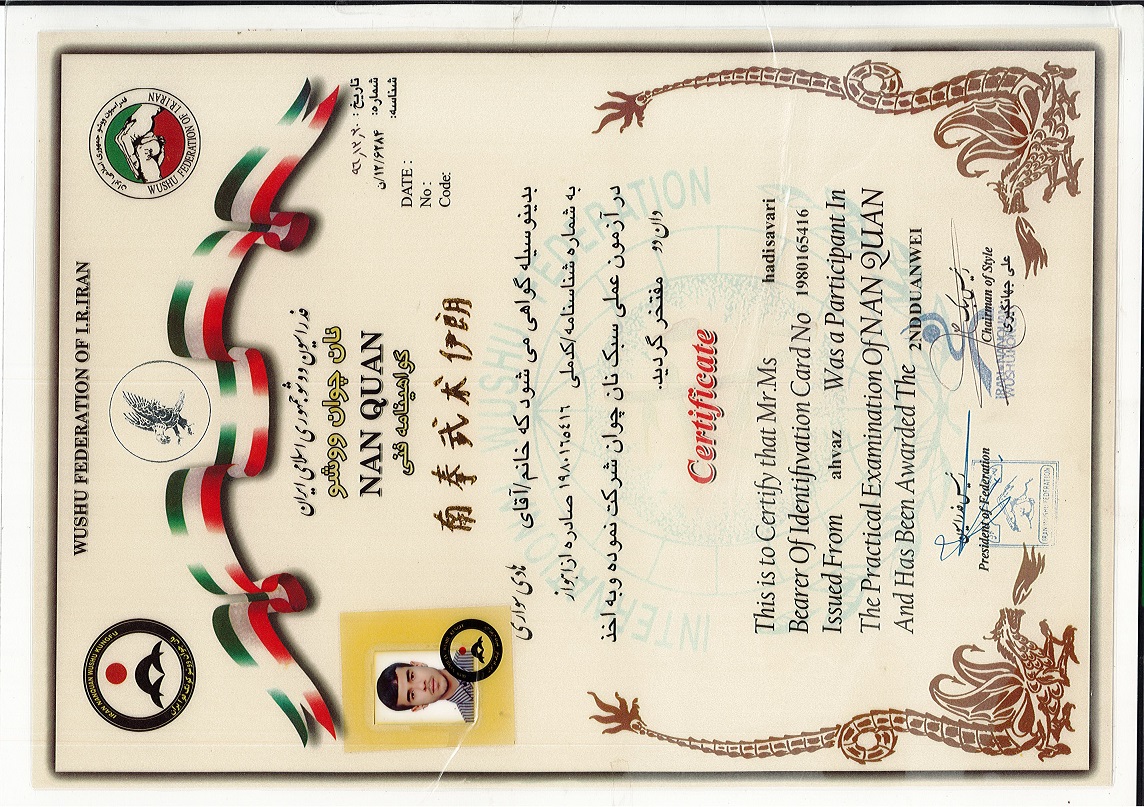 WUSHU FEDERATION OF I.R.IRAN
فدراسیون ووشو جمهوری اسلامی ایران
WUSHU FEDERATION OF I.R.IRAN
IRAN NANQUAN WUSHU KUNGFU
فدراسیون ووشو جمهوری اسلامی ایران
نان چوان ووشو
NAN QUAN
گواهینامه فنی
南拳武术伊朗
تاریخ:
شماره: ۱۲/۶۲۸۴/ن
شناسه:
DATE :
No :
Code:
بدینوسیله گواهی می شود که خانم/آقای هادی سواری
به شماره شناسنامه/کدملی ۱۹۸۰۱۶۵۴۱۶ صادره از اهواز
در آزمون عملی سبک نان چوان شرکت نموده و به اخذ
دان دو مفتخر گردید.
INTERNATIONAL WUSHU FEDERATION
Certificate
This is to Certify that Mr.Ms hadisavari
Bearer Of Identifivation Card No 1980165416
Issued From ahvaz Was a Participant In
The Practical Examination Of NAN QUAN
And Has Been Awarded The 2NDDUANWEI
رئیس فدراسیون
President of Federation
IRAN WUSHU FEDERATION
رئیس سبک
Chairman of Style
علی جهانگیری